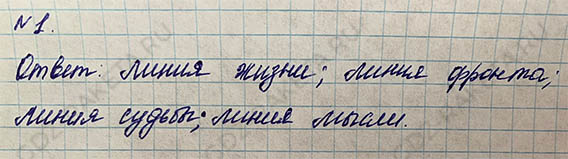 №1.
Ответ: линия жизни; линия фронта;
линия судьбы; линия мысли.